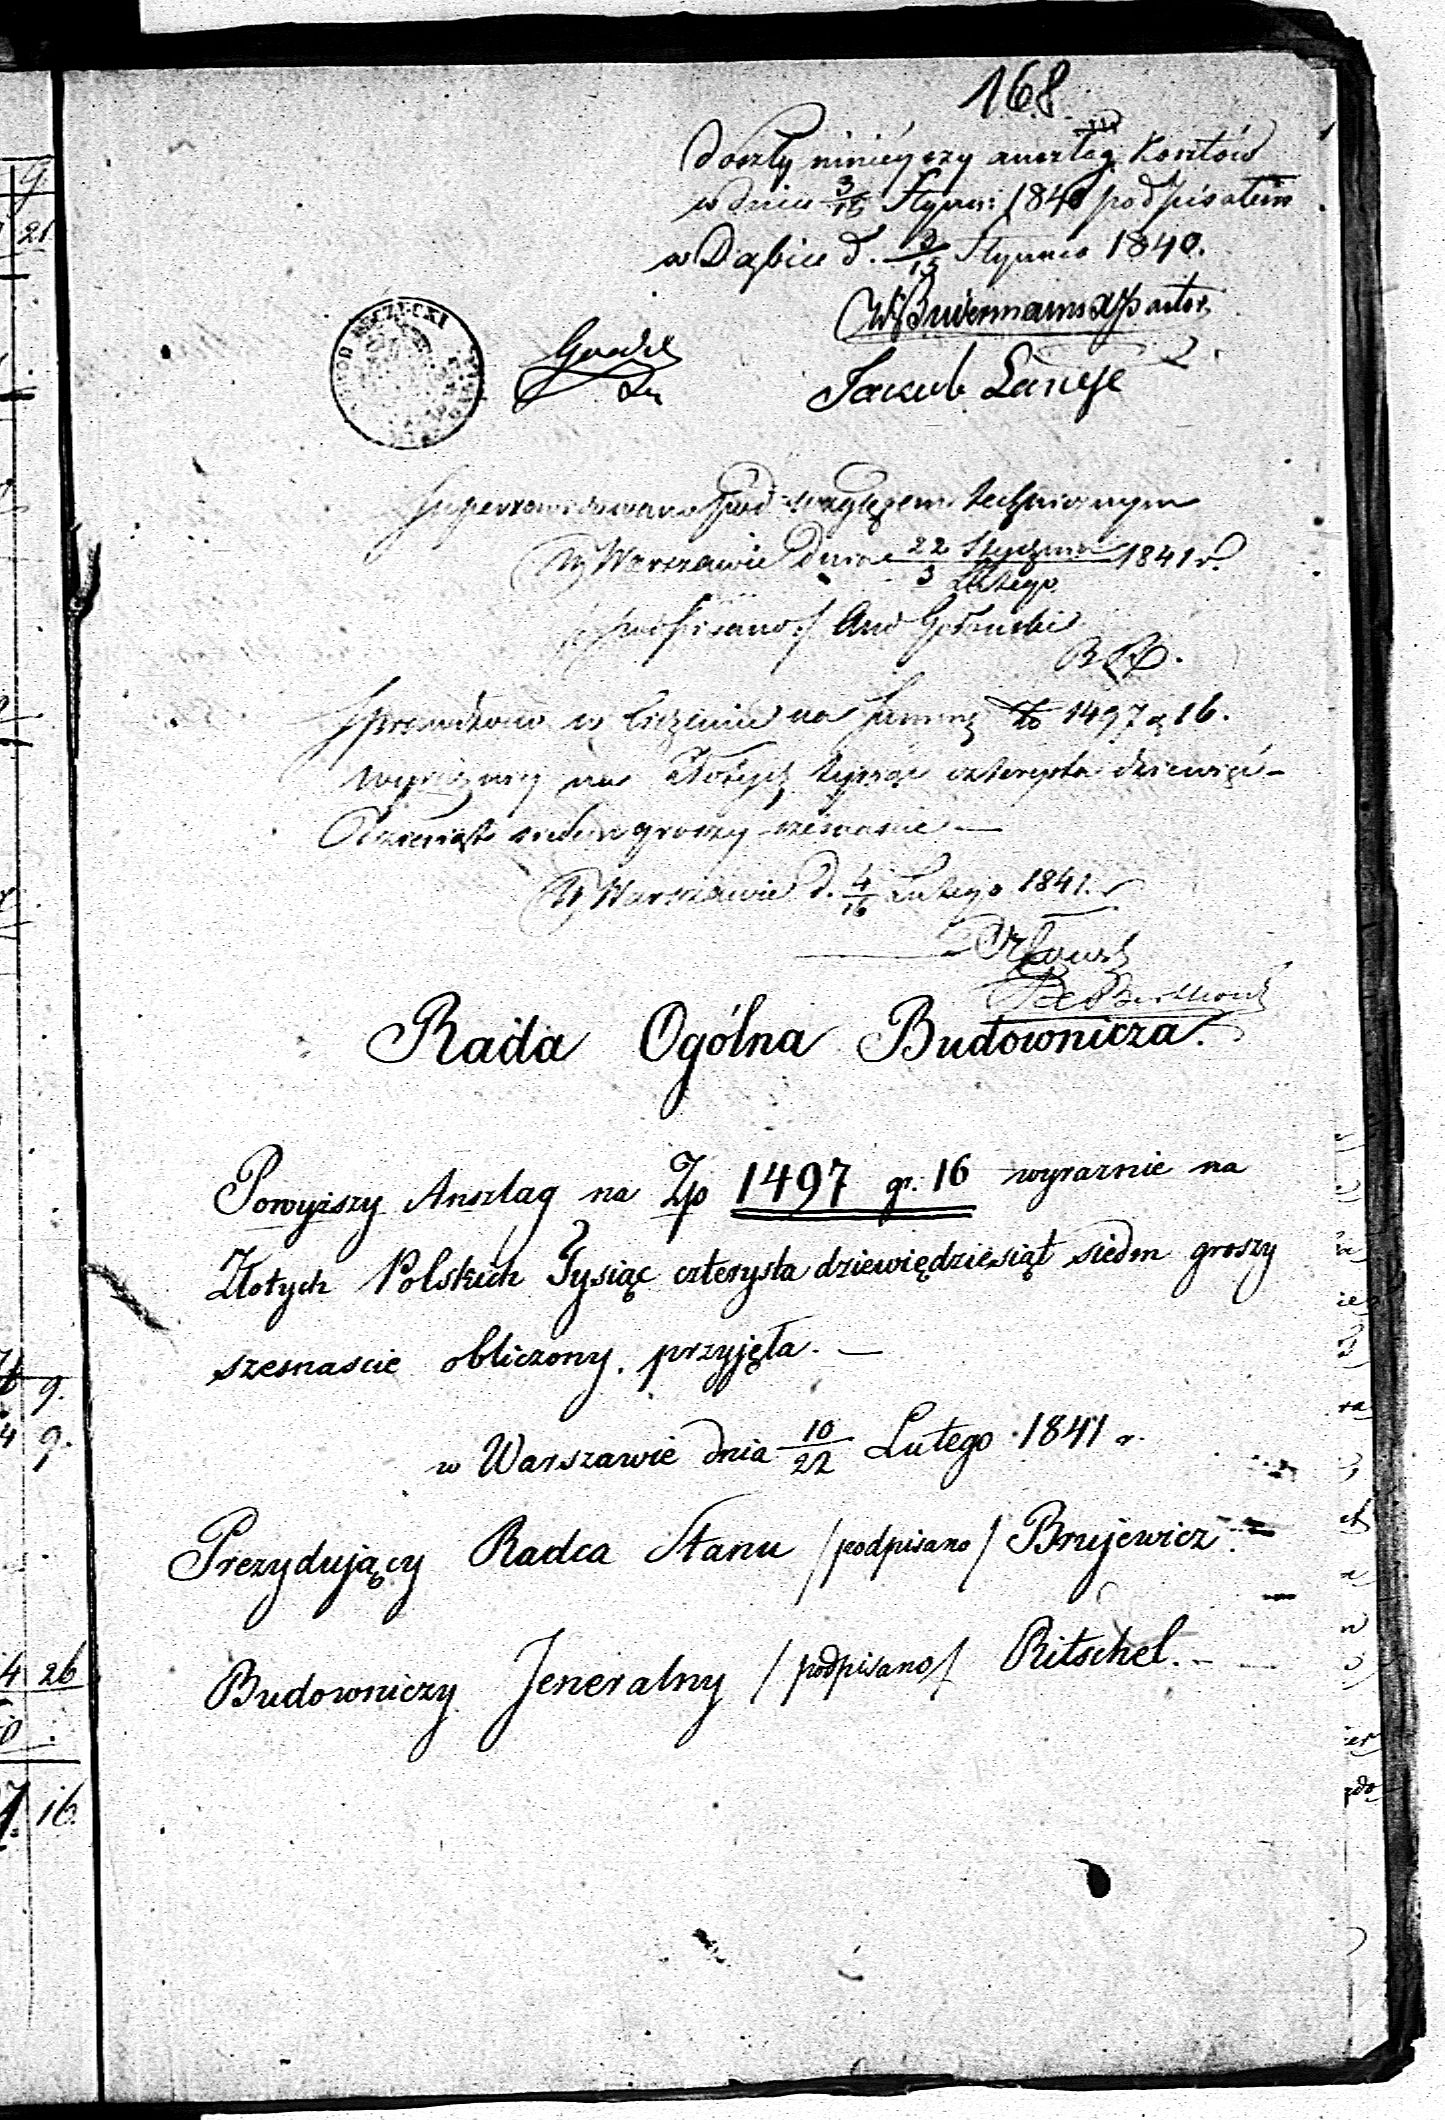 168.
doszły niniéyszy anszlag Kosztów
w dniu 3/15 Stycz: 1840 podpisałem
w Dąbiu d. 3/15 Stycznia 1840.
Pastor
Jakub Lange
Superrewidowano pod względem technicznym
W Warszawie dnia 22 Stycznia / 3 Lutego 1841 r.
/podpisano/ And Gołoński
Sprawdzono w liczeniu na Summę Zło 1497 g 16.
wyraźnie na Złotych tysiąc czterysta dziewięć-
dziesiąt siedem groszy szesnaście —
W Warszawie d. 4/16 Lutego 1841. r
Rada Ogólna Budownicza.
Powyższy Anszlag na Zp 1497 gr. 16 wyraznie na
Złotych Polskich Tysiąc czterysta dziewiędziesiąt siedm groszy
szesnascie obliczony. przyjęła. —
w Warszawie dnia 10/22 Lutego 1841 r.
Prezydujący Radca Stanu /podpisano/ Brujewicz.
Budowniczy Jeneralny /podpisano/ Ritschel.
g
21
9.
4 9.
4 26
16.